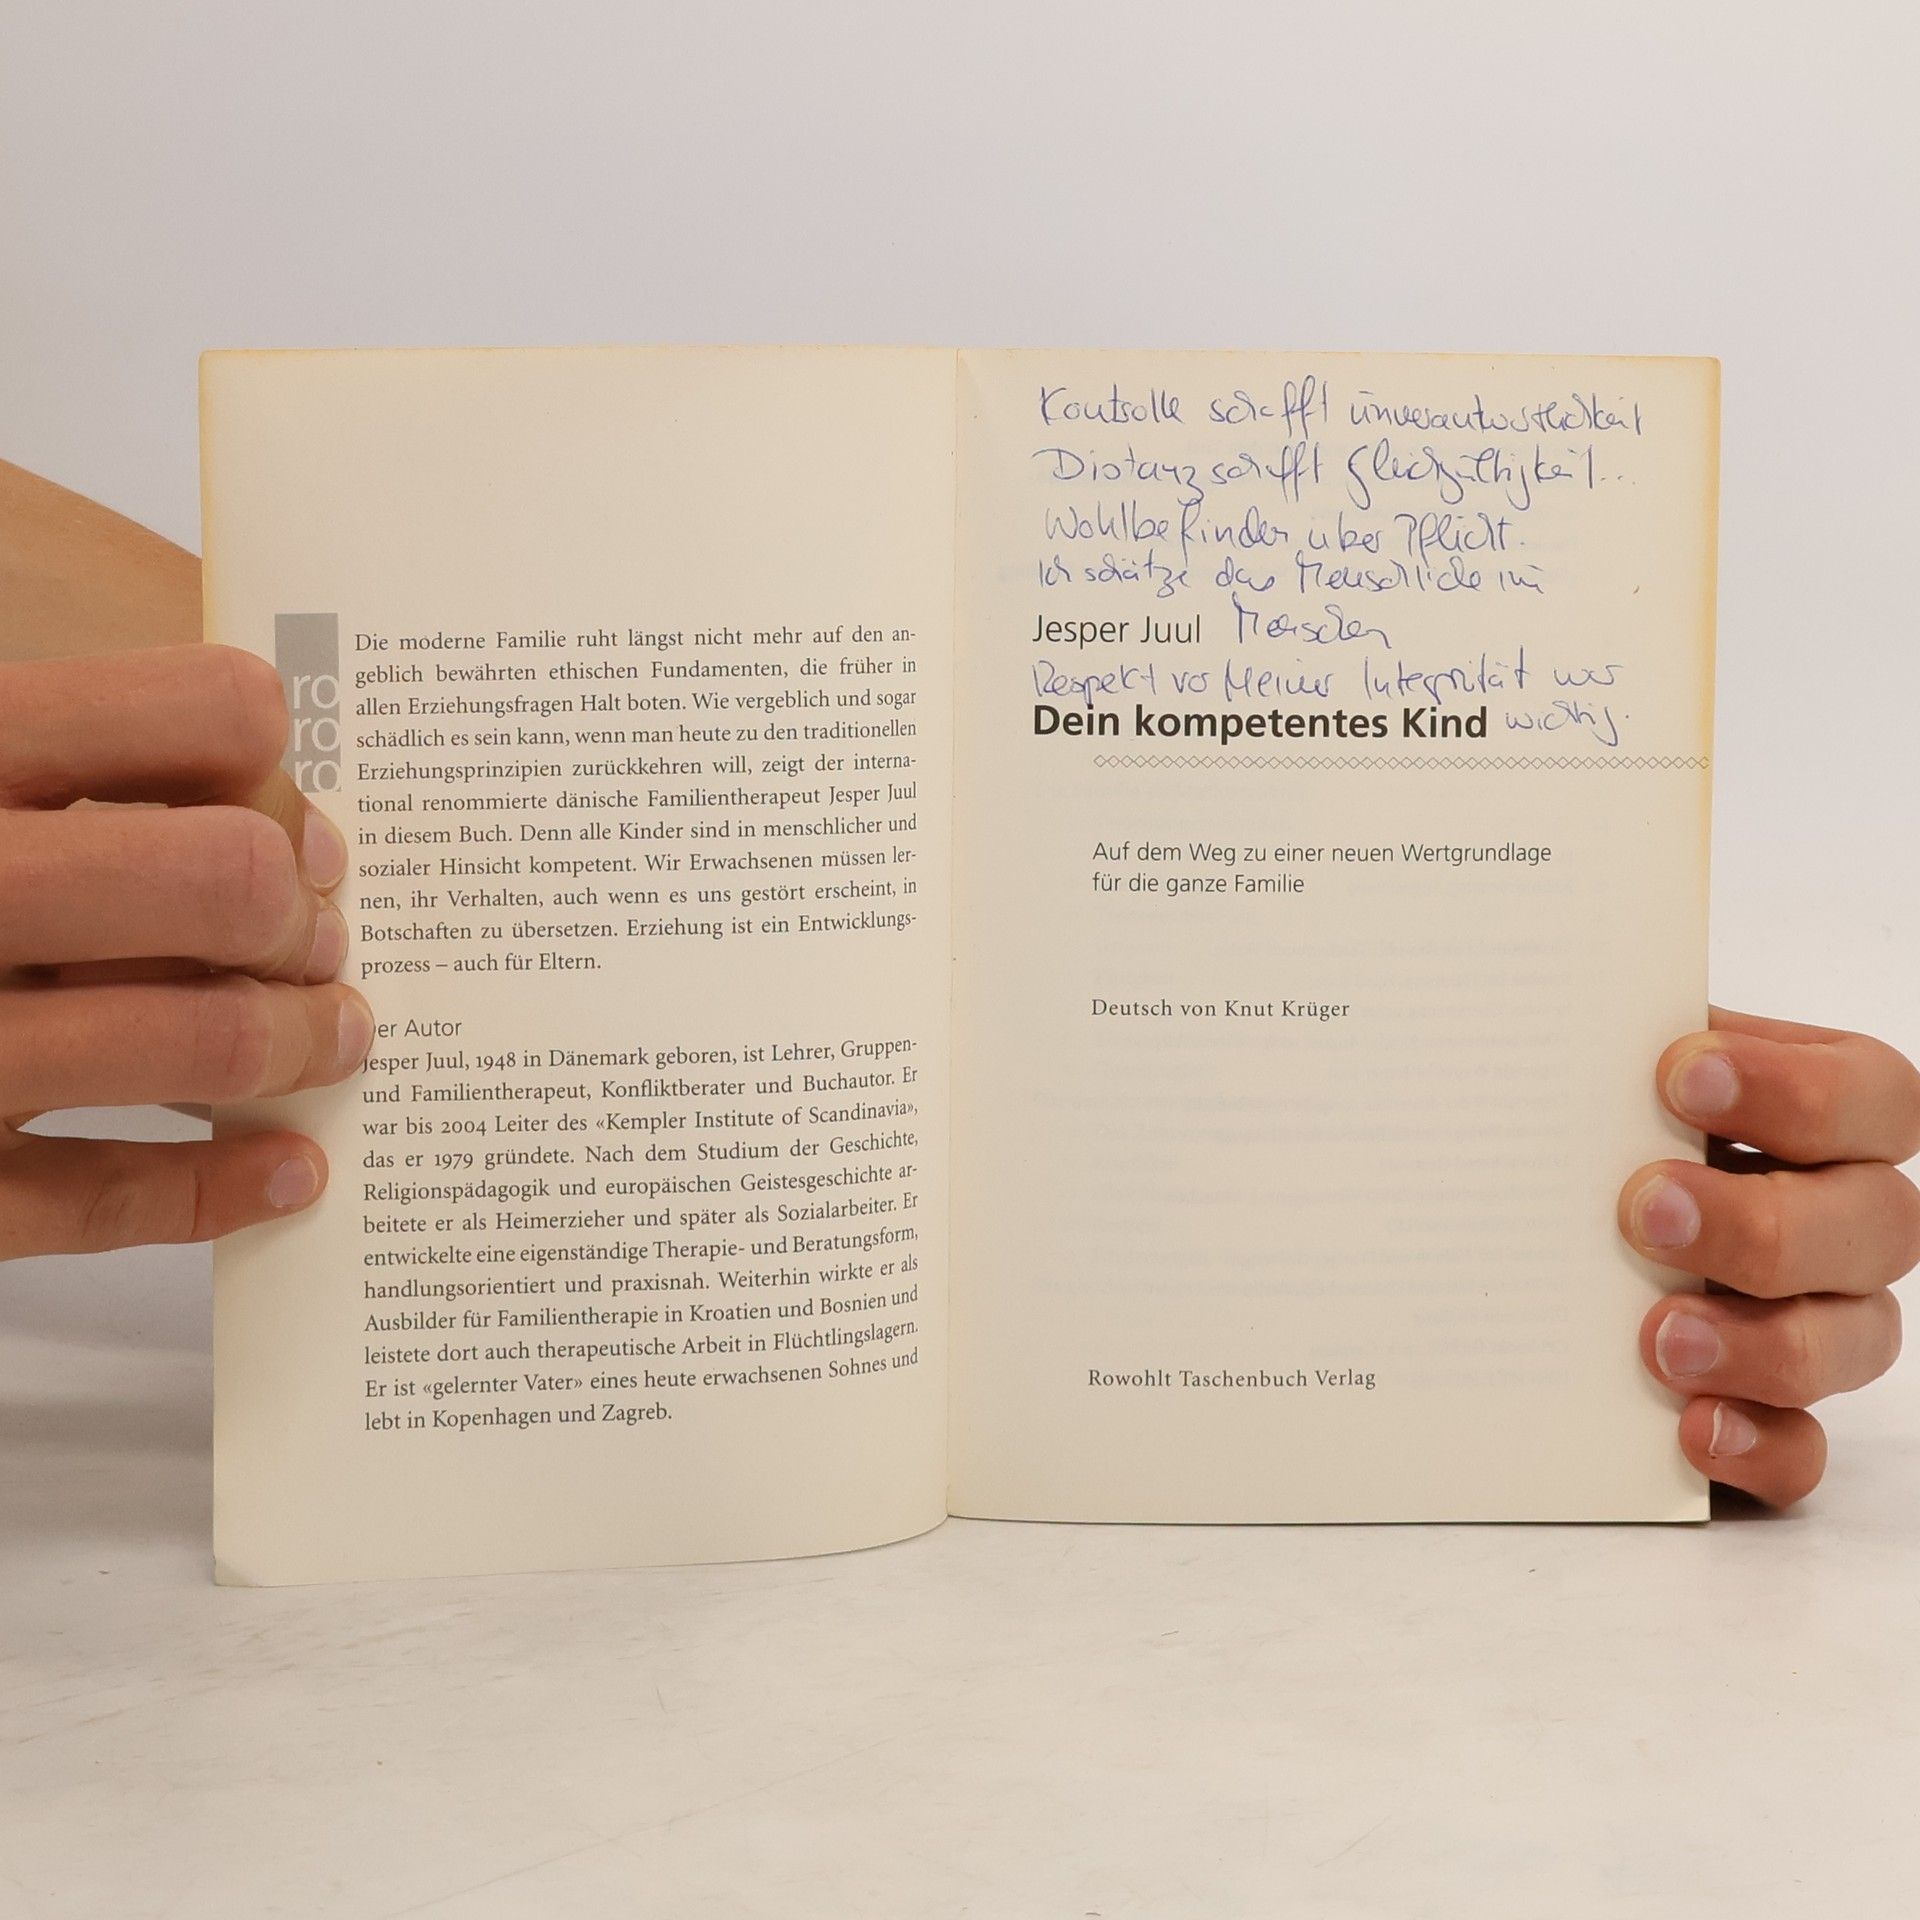 ro
ro
ro
Die moderne Familie ruht längst nicht mehr auf den an-
geblich bewährten ethischen Fundamenten, die früher in
allen Erziehungsfragen Halt boten. Wie vergeblich und sogar
schädlich es sein kann, wenn man heute zu den traditionellen
Erziehungsprinzipien zurückkehren will, zeigt der interna-
tional renommierte dänische Familientherapeut Jesper Juul
in diesem Buch. Denn alle Kinder sind in menschlicher und
sozialer Hinsicht kompetent. Wir Erwachsenen müssen ler-
nen, ihr Verhalten, auch wenn es uns gestört erscheint, in
Botschaften zu übersetzen. Erziehung ist ein Entwicklungs-
prozess – auch für Eltern.
er Autor
Jesper Juul, 1948 in Dänemark geboren, ist Lehrer, Gruppen-
und Familientherapeut, Konfliktberater und Buchautor. Er
war bis 2004 Leiter des «Kempler Institute of Scandinavia»,
das er 1979 gründete. Nach dem Studium der Geschichte,
Religionspädagogik und europäischen Geistesgeschichte ar-
beitete er als Heimerzieher und später als Sozialarbeiter. Er
entwickelte eine eigenständige Therapie- und Beratungsform,
handlungsorientiert und praxisnah. Weiterhin wirkte er als
Ausbilder für Familientherapie in Kroatien und Bosnien und
leistete dort auch therapeutische Arbeit in Flüchtlingslagern.
Er ist «gelernter Vater» eines heute erwachsenen Sohnes und
lebt in Kopenhagen und Zagreb.
Kontrolle schafft unverantwortlichkeit
Distanz schafft Gleichgültigkeit...
Wohlbefinden über Pflicht.
Ich schätze das Menschliche im
Jesper Juul Menschen
Respekt vor Meiner Integrität war
Dein kompetentes Kind wichtig.
Auf dem Weg zu einer neuen Wertgrundlage
für die ganze Familie
Deutsch von Knut Krüger
Rowohlt Taschenbuch Verlag